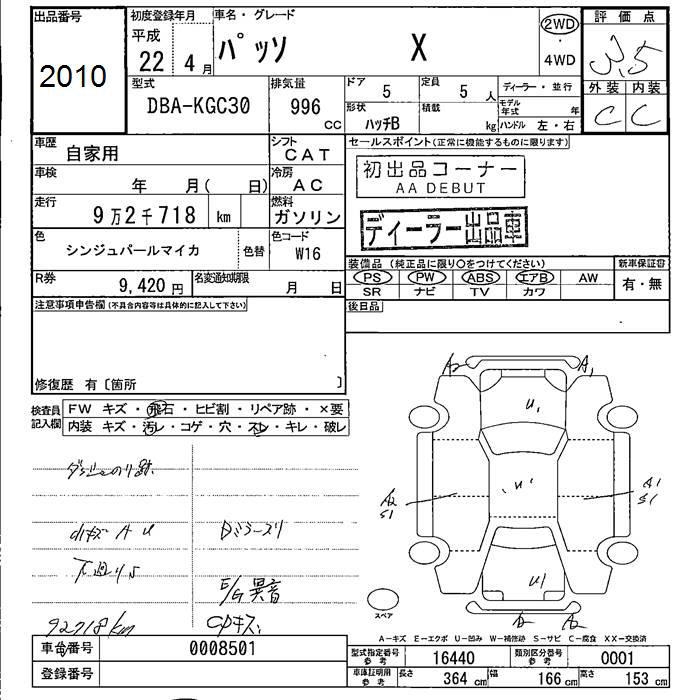 出品番号
2010
初度登録年月
平成
22年 4月
車名・グレード
パッソ X
2WD
・
4WD
評価点
3.5
外装 内装
C C
型式
DBA-KGC30
排気量
996
CC
ドア
5
定員
5 人
形状
ハッチB
積載
kg
ディーラー・並行
モデル年式 年
ハンドル 左・右
車歴
自家用
シフト
CAT
車検
年 月( 日)
冷房
AC
走行
9万2千718 km
燃料
ガソリン
色
シンジュパールマイカ
色替
色コード
W16
R券
9,420 円
名変通知期限
月 日
セールスポイント(正常に機能するものに限ります)
初出品コーナー
AA DEBUT
ディーラー出品車
装備品(純正品に限り○をつけてください)
PS PW ABS エアB AW
SR ナビ TV カワ
新車保証書
有・無
後日品
注意事項申告欄(不具合内容等は具体的に記入して下さい)
修復歴 有〔箇所 〕
検査員
記入欄
FW キズ・飛石・ヒビ割・リペア跡・×要
内装 キズ・汚レ・コゲ・穴・スレ・キレ・破レ
A U
Bミラースリ
E/G異音
92718km
CPキズ
A2 A1
U1
U1
A2
S1
A1
S1
U1
A2 A2
スペア
A-キズ E-エクボ U-凹み W-補修跡 S-サビ C-腐食 XX-交換済
車台番号
0008501
登録番号
型式指定番号
参考
16440
類別区分番号
参考
0001
車庫証明用
参考
長さ 364 cm
幅 166 cm
高さ 153 cm